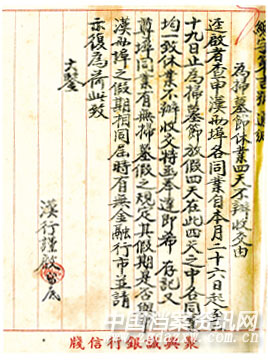 為掃墓節休業四天不辦收交由
逕啟者查申漢兩埠各同業自本月二十六日起至二
十九日止為掃墓節放假四天在此四天之中各同業
均一致休業不辦收交特函奉達即希 存記又
尊埠同業有無掃墓假之規定其假期是否與
漢兩埠之假期相同屆時有無金融行市並請
示復為荷此致
大鑒
漢行謹啟
聚興誠銀行信牋
中国档案资讯网